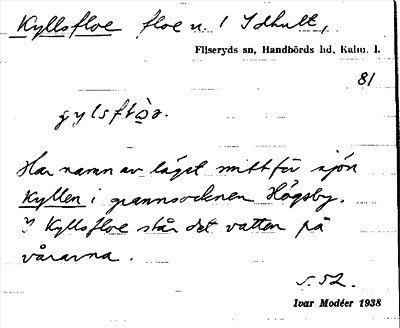 Kyllsfloe floe n. / Idhult,
Fliseryds sn, Handbörds hd, Kalm. l.
81
gylsflo̱̊̀ə.
Har namn av läget mitt för sjön
Kyllen i grannsocknen Högsby.
I Kyllsfloe står det vatten på
vårarna.
s. 52.
Ivar Modéer 1938